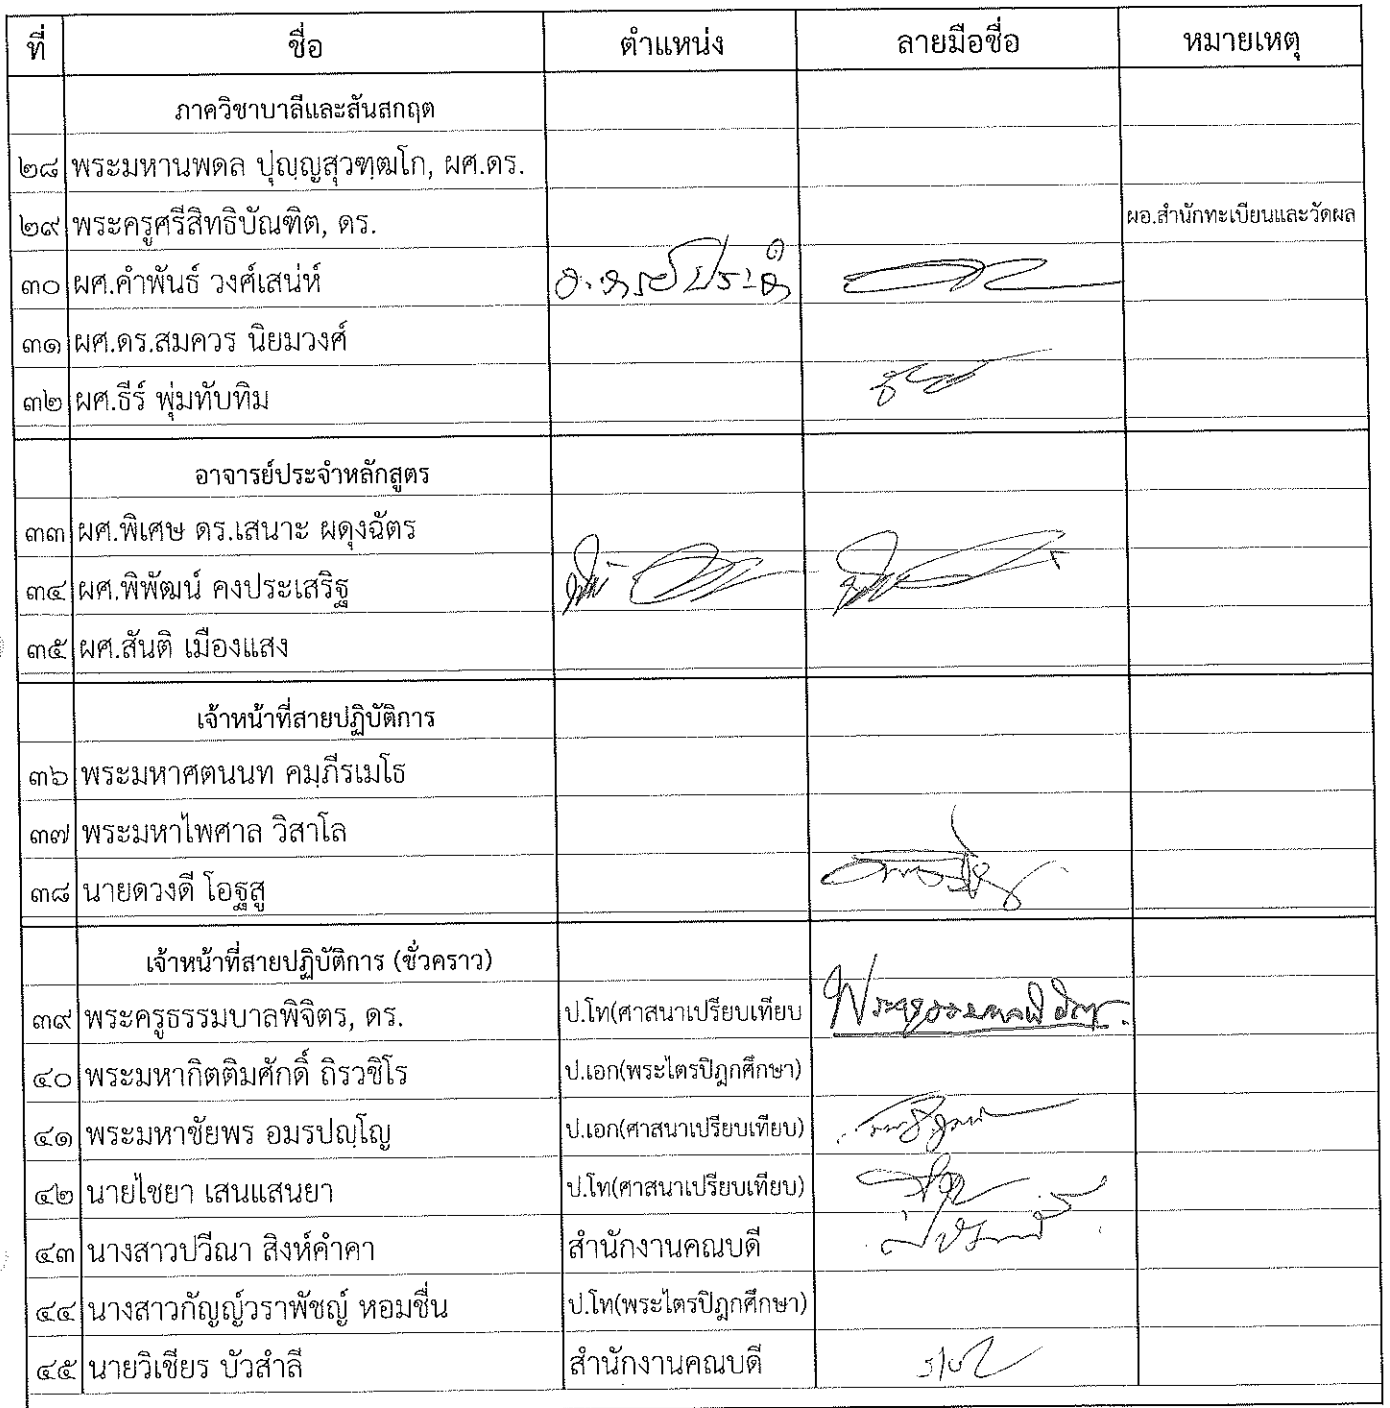 ที่ ชื่อ ตำแหน่ง ลายมือชื่อ หมายเหตุ
ภาควิชาบาลีและสันสกฤต
๒๘ พระมหานพดล ปุญฺญสุวฑฺฒโก, ผศ.ดร.
๒๙ พระครูศรีสิทธิบัณฑิต, ดร. ผอ.สำนักทะเบียนและวัดผล
๓๐ ผศ.คำพันธ์ วงศ์เสน่ห์
๓๑ ผศ.ดร.สมควร นิยมวงศ์
๓๒ ผศ.ธีร์ พุ่มทับทิม
อาจารย์ประจำหลักสูตร
๓๓ ผศ.พิเศษ ดร.เสนาะ ผดุงฉัตร
๓๔ ผศ.พิพัฒน์ คงประเสริฐ
๓๕ ผศ.สันติ เมืองแสง
เจ้าหน้าที่สายปฏิบัติการ
๓๖ พระมหาศตนนท คมฺภีรเมโธ
๓๗ พระมหาไพศาล วิสาโล
๓๘ นายดวงดี โอฐสู
เจ้าหน้าที่สายปฏิบัติการ (ชั่วคราว)
๓๙ พระครูธรรมบาลพิจิตร, ดร. ป.โท(ศาสนาเปรียบเทียบ พระครูธรรมบาลพิจิตร.
๔๐ พระมหากิตติมศักดิ์ ถิรวชิโร ป.เอก(พระไตรปิฎกศึกษา)
๔๑ พระมหาชัยพร อมรปญฺโญ ป.เอก(ศาสนาเปรียบเทียบ)
๔๒ นายไชยา เสนแสนยา ป.โท(ศาสนาเปรียบเทียบ)
๔๓ นางสาวปวีณา สิงห์คำคา สำนักงานคณบดี
๔๔ นางสาวกัญญ์วราพัชญ์ หอมชื่น ป.โท(พระไตรปิฎกศึกษา)
๔๕ นายวิเชียร บัวสำลี สำนักงานคณบดี